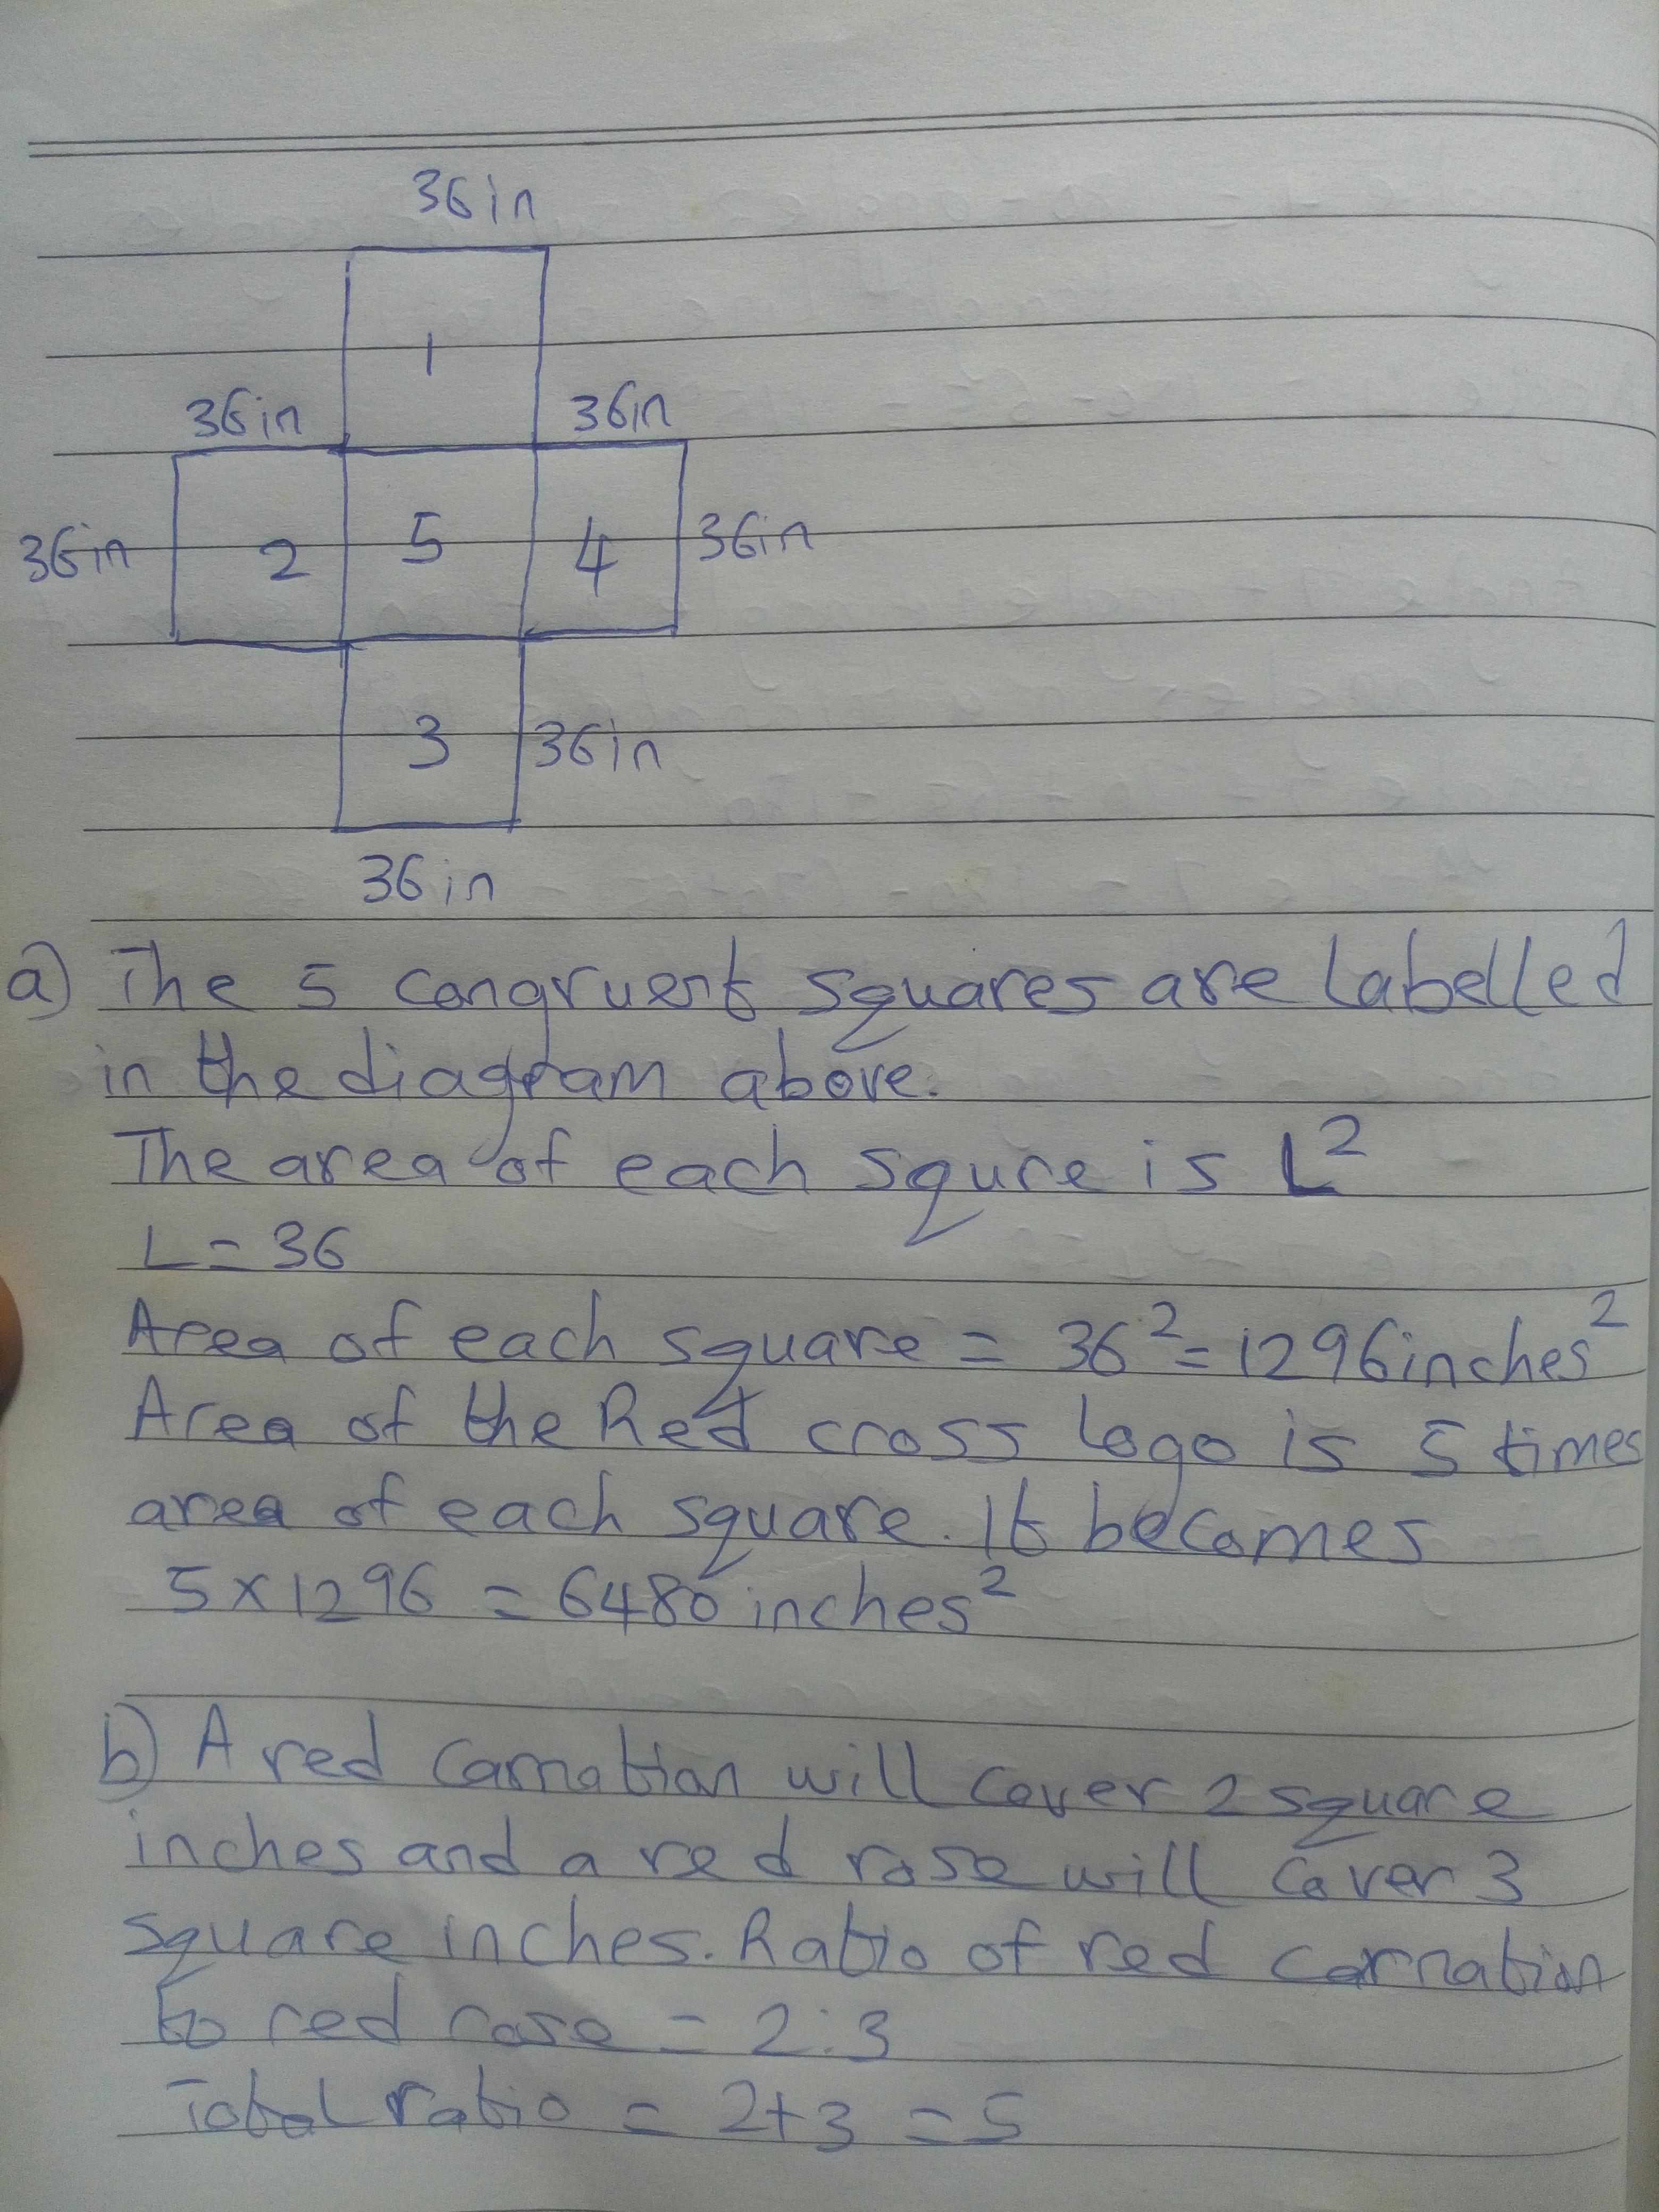 36in
1
36in
36in
36in
2
5
4
36in
3
36in
36in
a) The 5 congruent squares are labelled
in the diagram above.
The area of each squre is L²
L = 36
Area of each square = 36² = 1296inches²
Area of the Red cross logo is 5 times
area of each square. It becomes
5 x 1296 = 6480 inches²
b) A red carnation will cover 2 square
inches and a red rose will cover 3
square inches. Ratio of red carnation
to red rose = 2:3
Total ratio = 2+3 = 5